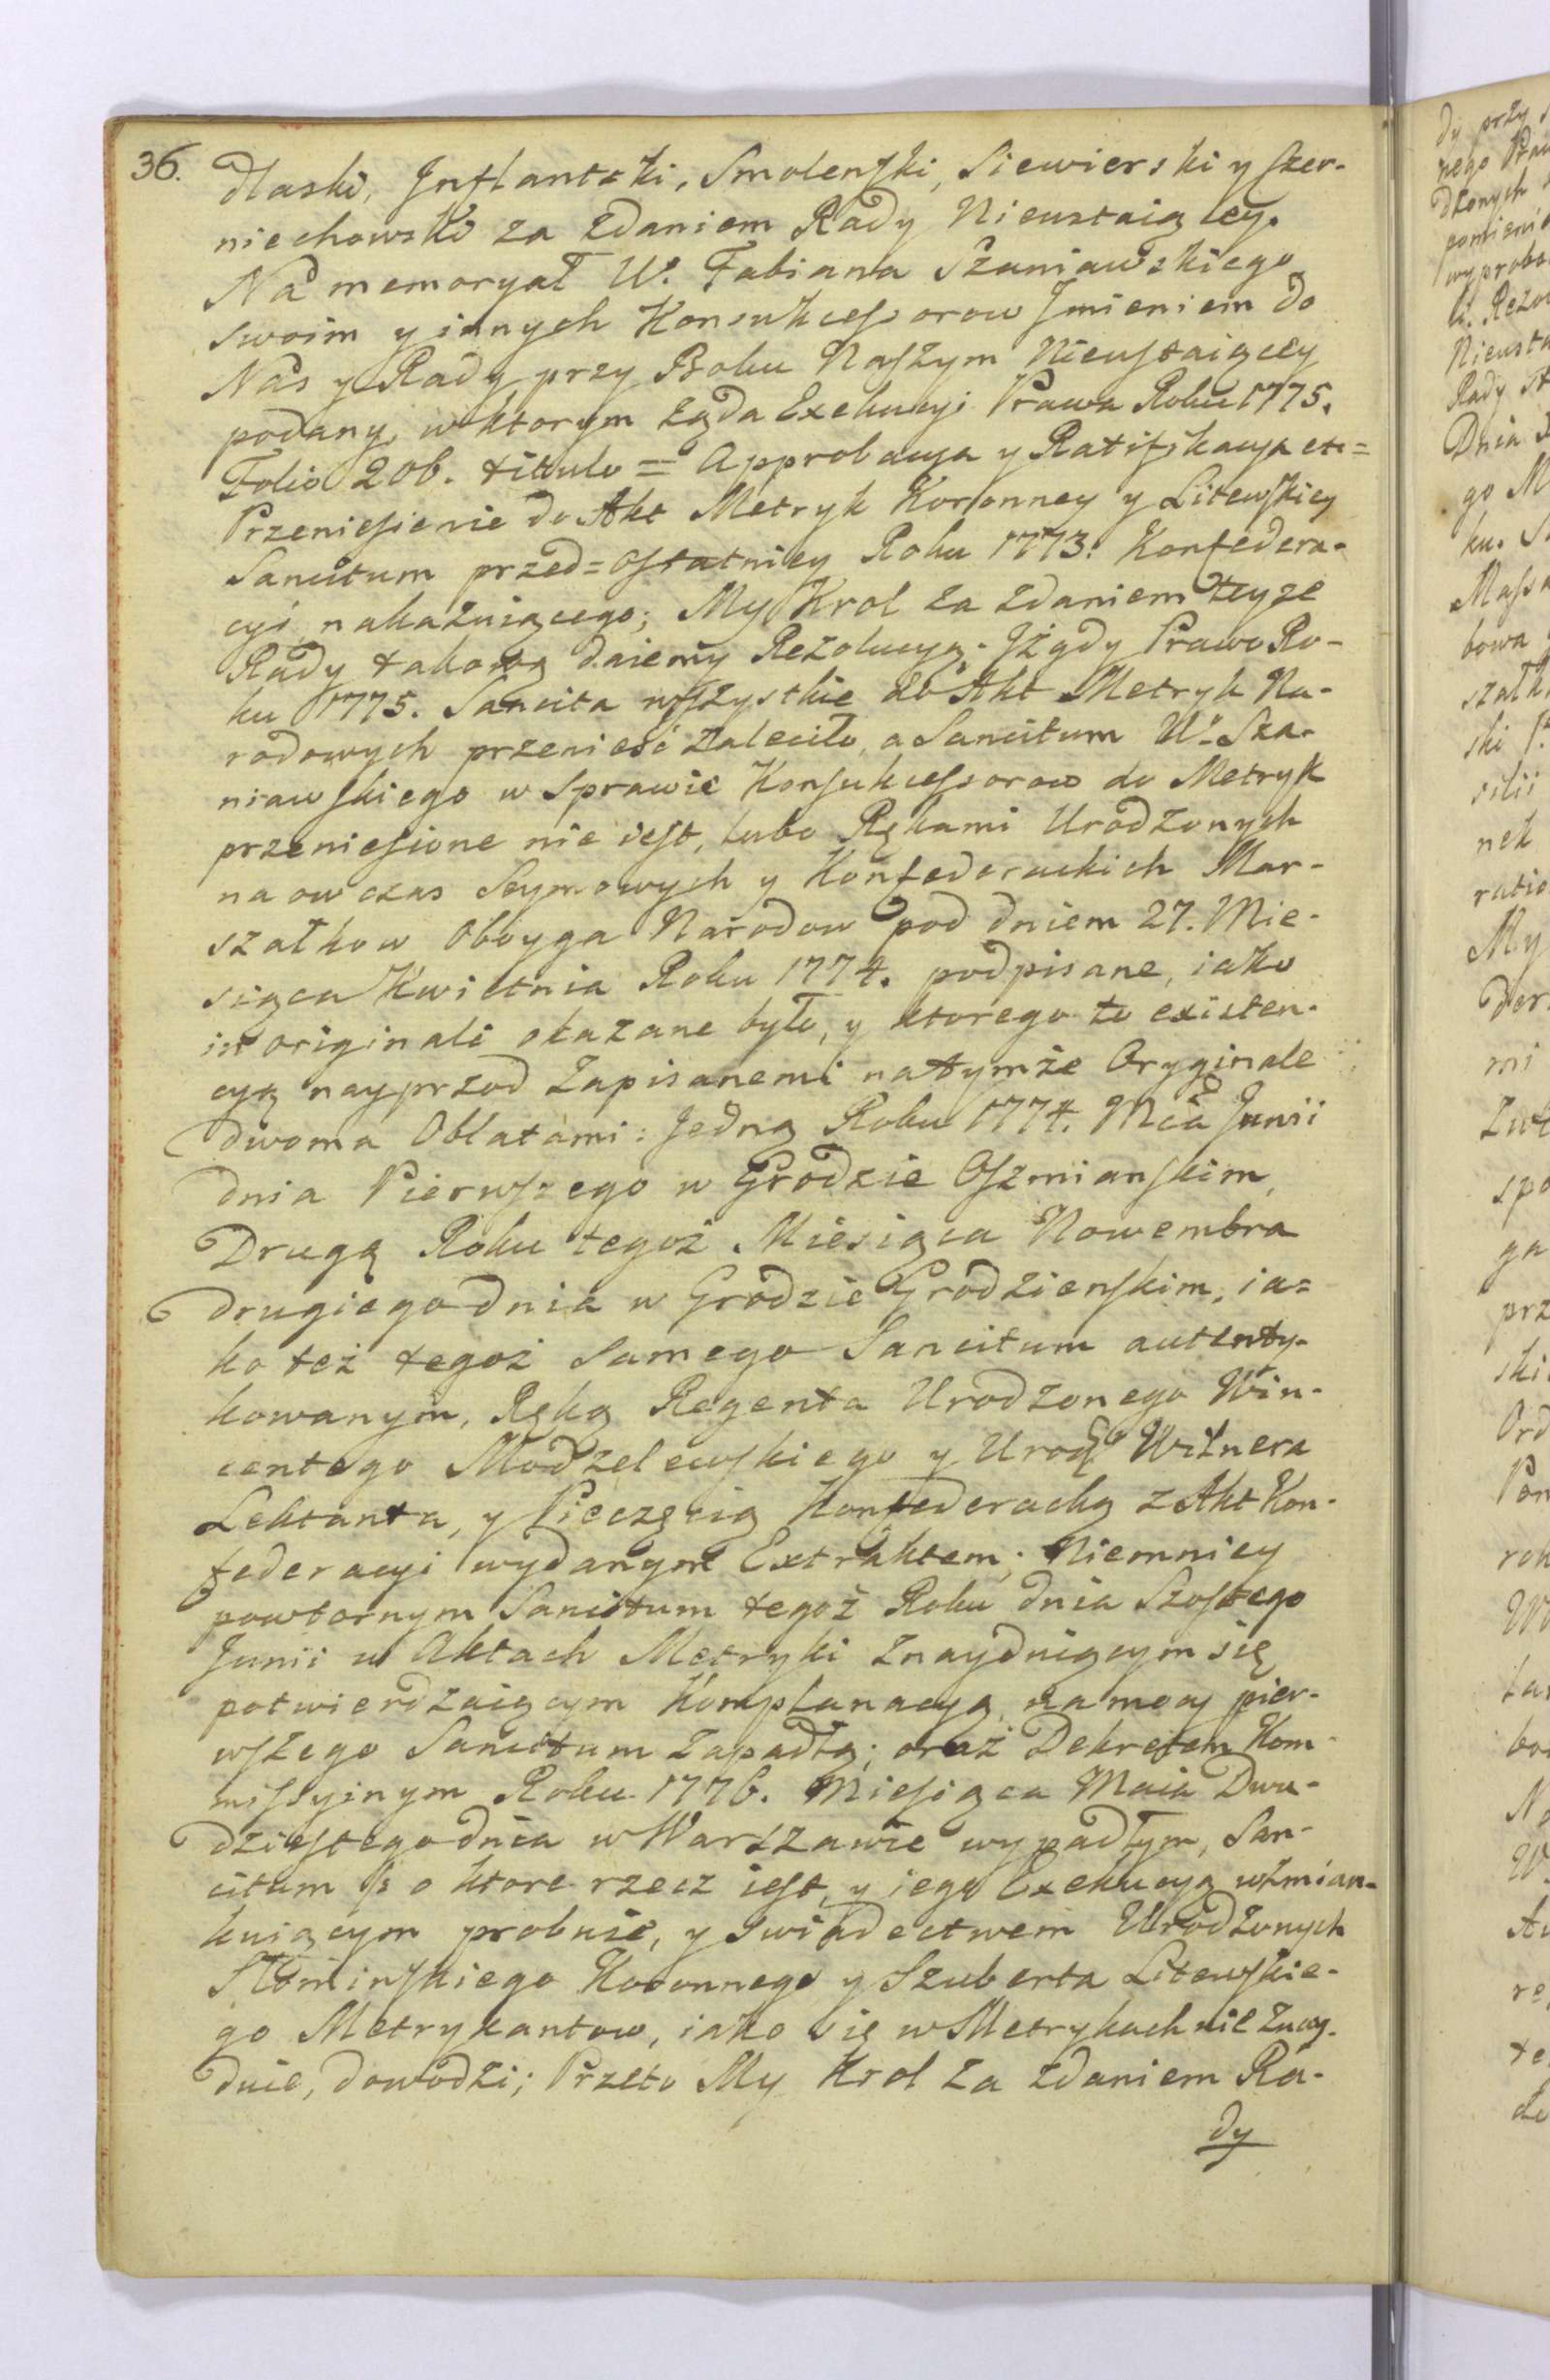 36.
dlaski, Inflantski, Smolenski, Siewierski y Czer-
niechowski za zdaniem Rady Nieustaiącey.
Na memoryał W. Fabiana Szaniawskiego
swoim y innych Konsukcessorow Imieniem do
Nas y Rady przy Boku Naszym Nieustaiącey
podany, w ktorym żąda Exekucyi Prawa Roku 1775.
Folio 206. titulo = Approbacya y Ratifikacya etc =
Przeniesienie do Akt Metryk Koronney y Litewskiey
Sancitum przed=ostatniey Roku 1773. Konfedera-
cyi nakazuiącego; My Krol za zdaniem teyże
Rady takową daiemy Rezolucyą. Iż gdy Prawo Ro-
ku 1775. Sancita wszystkie do Akt Metryk Na-
rodowych przenieść zaleciło, a Sancitum W. Sza-
niawskiego w Sprawie Konsukcessorow do Metryk
przeniesione nie iest, lubo Rękami Urodzonych
na ow czas Seymowych y Konfederackich Mar-
szałkow Oboyga Narodow pod dniem 27. Mie-
siąca Kwietnia Roku 1774. podpisane, iako
in originali okazane było, y ktorego to existen-
cyą nayprzod Zapisanemi na tymże Oryginale
dwoma Oblatami: Jedną Roku 1774. Mca Junii
dnia Pierwszego w Grodzie Oszmianskim,
Drugą Roku tegoż Miesiąca Nowembra
drugiego dnia w Grodzie Grodzienskim, ia=
ko też tegoż samego Sancitum autenty-
kowanym, Ręką Regenta Urodzonego Win-
centego Modzelewskiego y Urodz Witnera
Lektanta, y Pieczęcią Konfederacką z Akt Kon-
federacyi wydanym Extraktem; Niemniey
powtornym Sancitum tegoż Roku dnia Szostego
Junii w Aktach Metryki znayduiącym się
potwierdzaiącym Komplanacyą, na mocy pier-
wszego Sancitum zapadłą; oraz Dekretem Kom-
missyinym Roku 1776. Miesiąca Maia Dwu-
dziestego dnia w Warszawie wypadłym, San-
citum o ktore rzecz iest, y iego Exekucyą wzmian-
kuiącym probuie, y swiadectwem Urodzonych
Koronnego y Szuberta Litewskie-
go Metrykantow, iako się w Metrykach nie znay-
duie, dowodzi; Przeto My Krol za zdaniem Ra-
dy